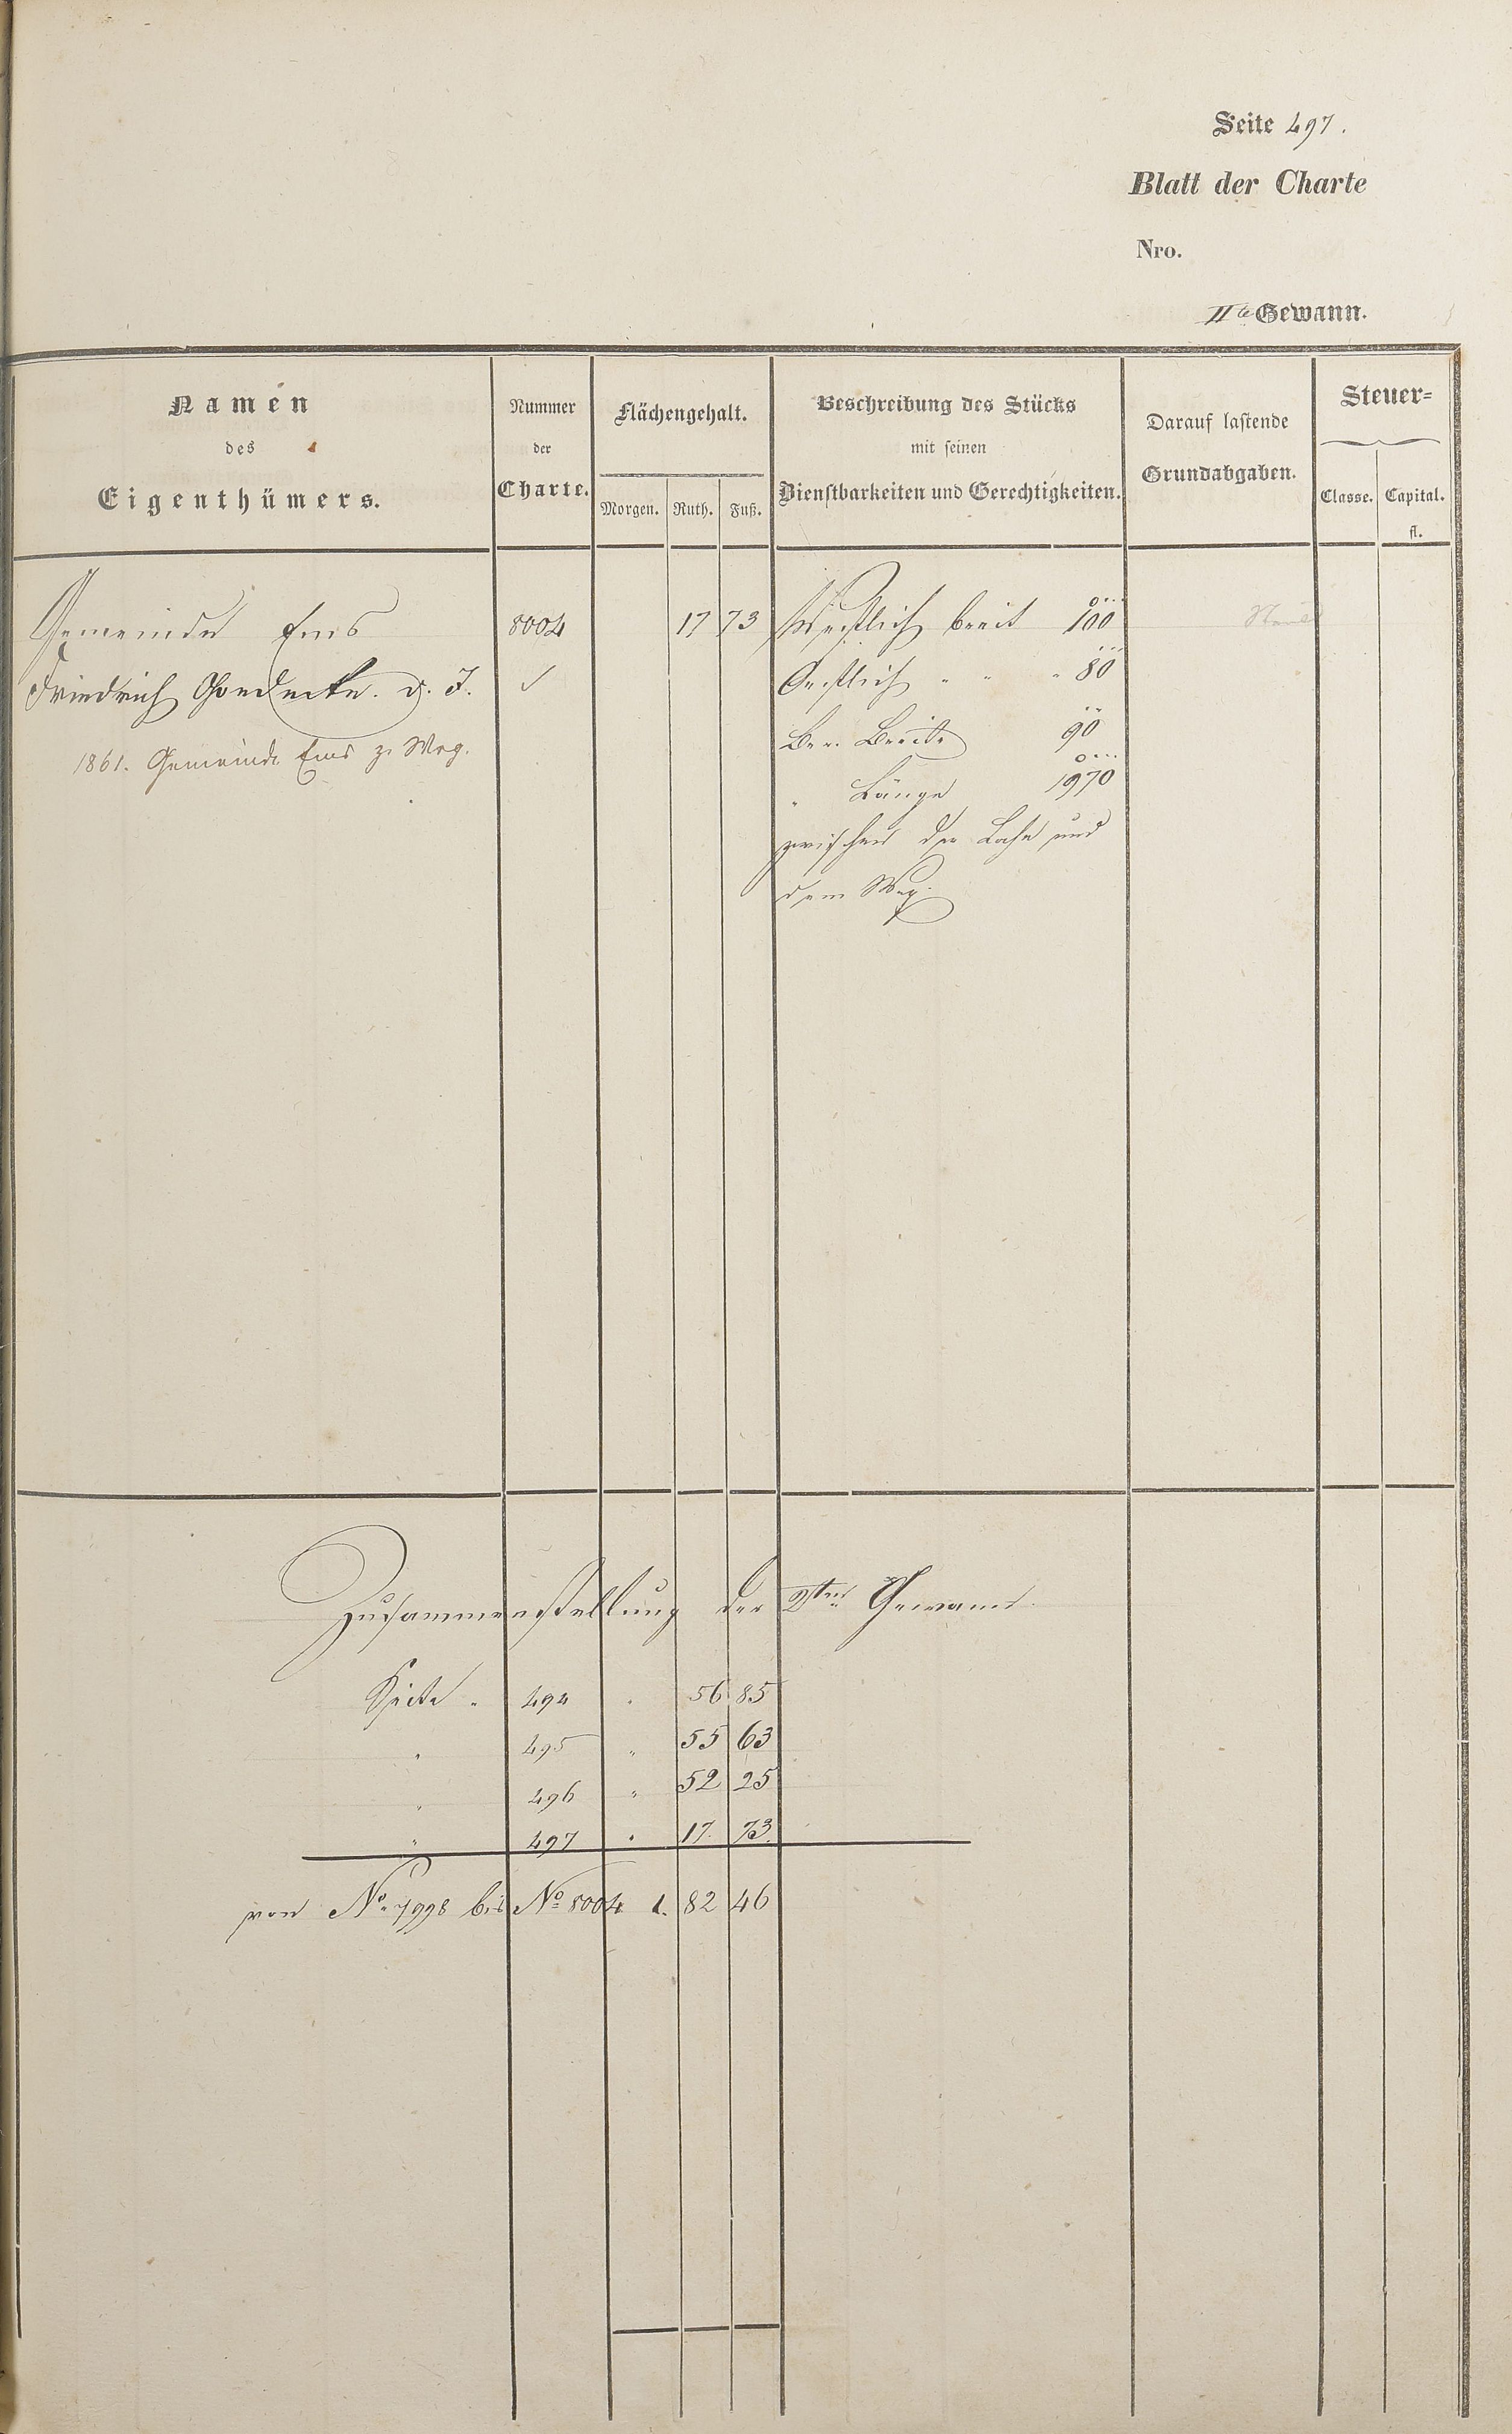 Seite 497.
Blatt der Charte
Nro.
IIte Gewann.
Namen
des
Eigenthümers.
Nummer
der
Charte.
Flächengehalt.
Morgen. Ruth. Fuß.
Beschreibung des Stücks
mit seinen
Dienstbarkeiten und Gerechtigkeiten.
Darauf lastende
Grundabgaben.
Steuer=
Classe. Capital.
fl.
Gemeinde Ems 8004 17 73 Westlich breit 100
Friedrich Goedecke. d. J. ✓ Oestlich " " " 80
1861. Gemeinde Ems z. Weg. Ber. Breite 90
" Länge 1970
zwischen der Lahn und
dem Weg.
Zusammenstellung der 2ten Gewann.
Seite " 494 " 56 85
" 495 " 55 63
" 496 " 52 25
" 497 " 17. 73.
von No. 7998 bis No 8004 1. 82 46